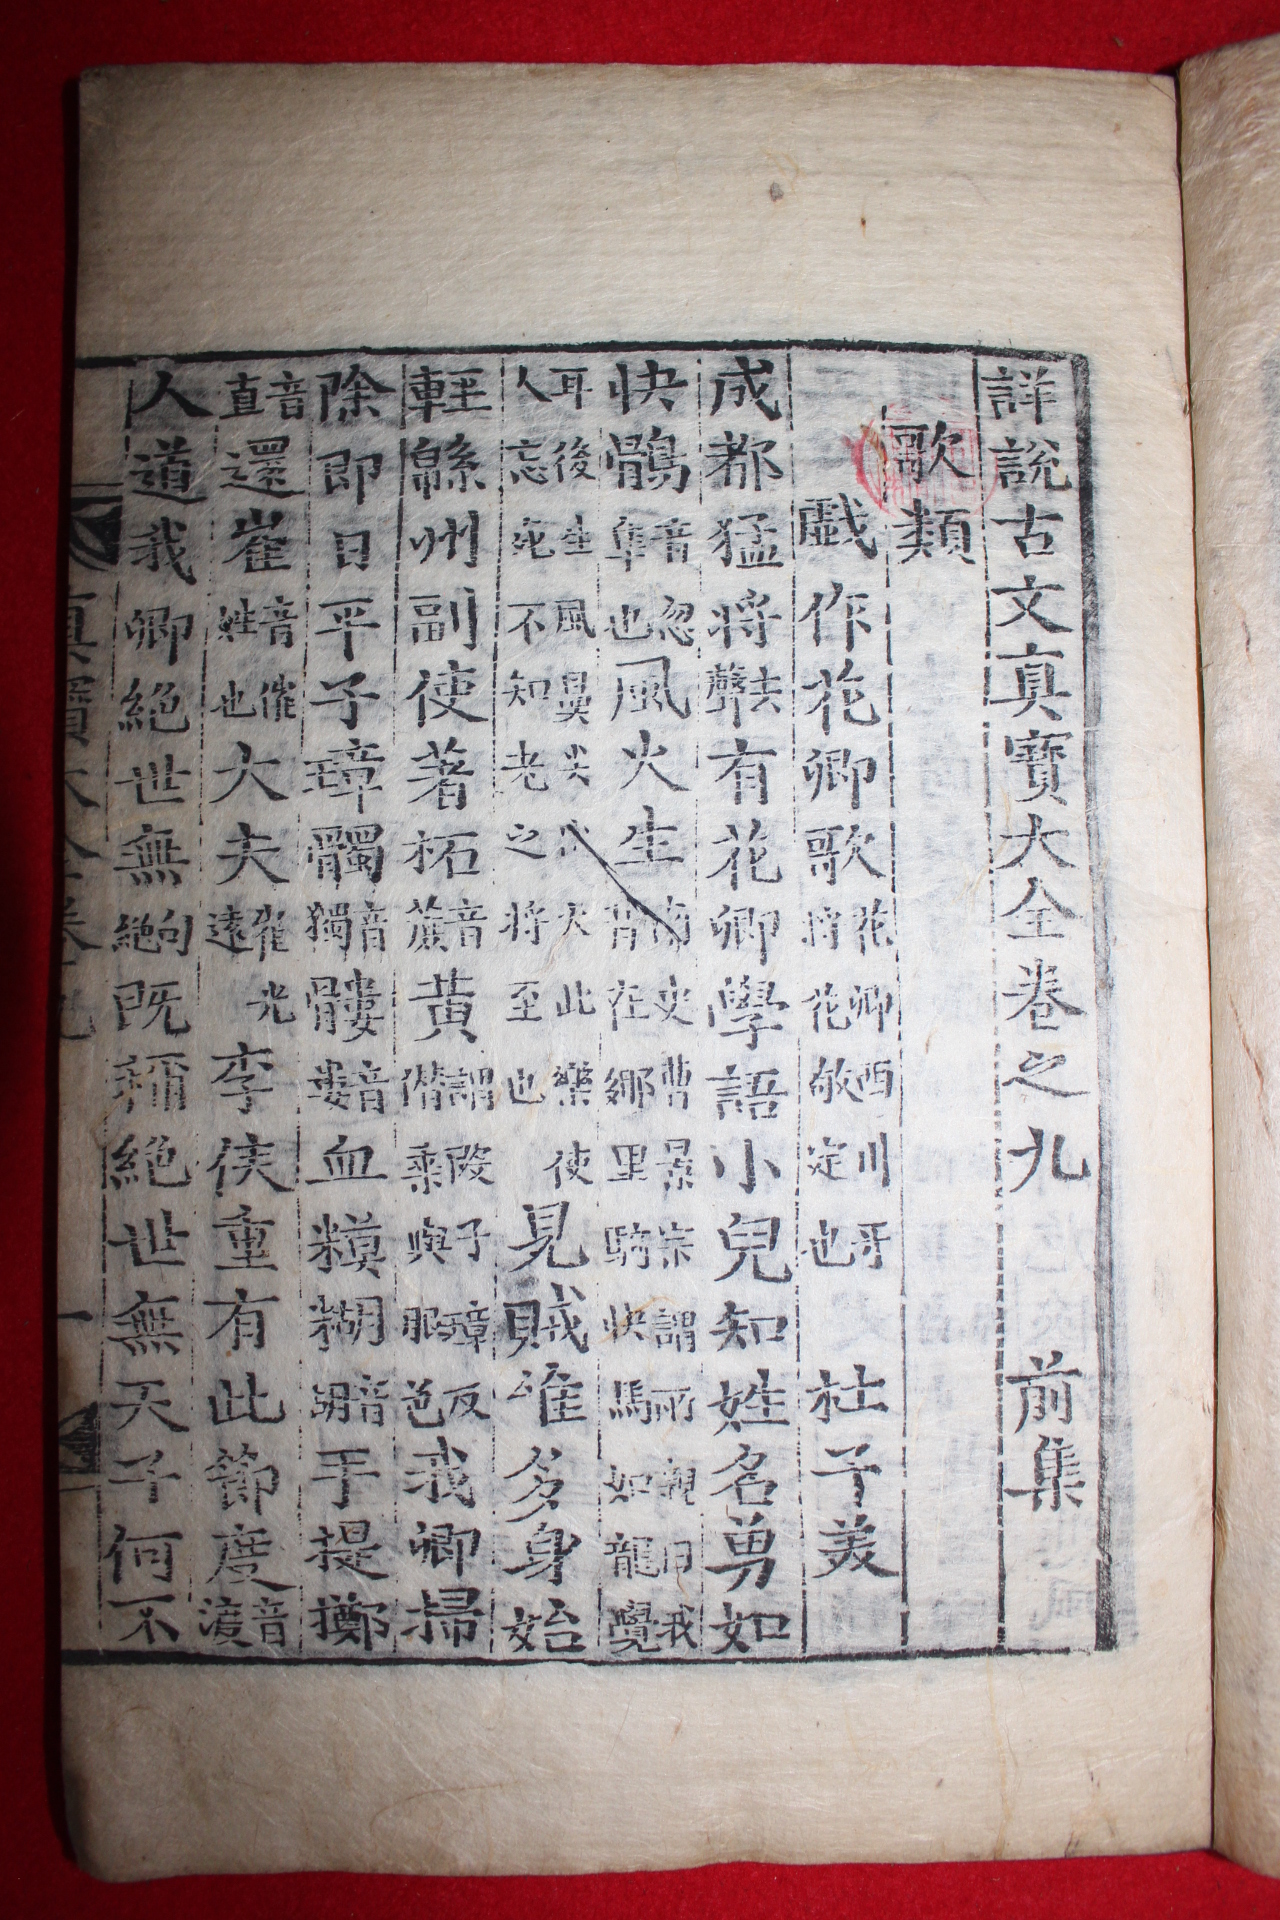 詳說古文真寶大全卷之九 前集
歌類
戲作花卿歌 花卿西川牙將花敬定也 杜子美
成都猛將去聲有花卿學語小兒知姓名勇如
快鶻音忽隼也風火生南史曹景宗謂所親曰我昔在鄉里騎快馬如龍覺
耳後生風鼻尖火此樂使人忘死不知老之將至也見賊惟多身始
輕緜州副使著柘音蔗黃謂段子璋反僭乘輿服色我卿掃
除即日平子璋髑音獨髏音婁血糢糊音胡手提擲
音直還崔音催姓也大夫崔光遠李侯重有此節度音渡
人道我卿絕世無句絕既稱絕世無天子何不
真寶大全卷九 一